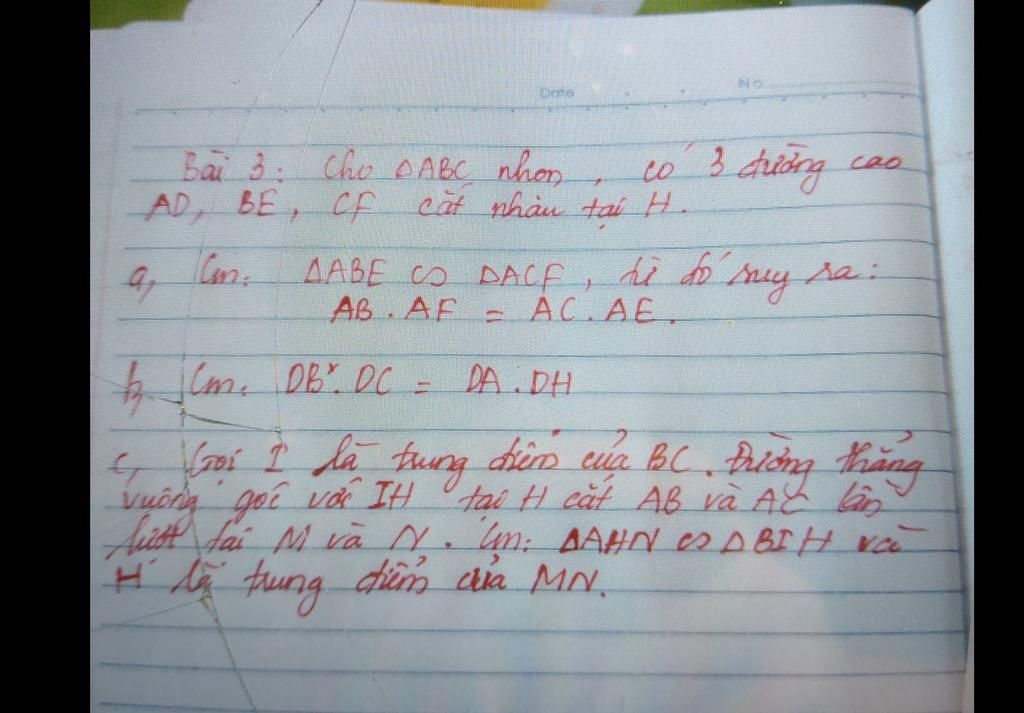 Date No
Bài 3: Cho ΔABC nhọn, có 3 đường cao
AD, BE, CF cắt nhau tại H.
a, Cm: ΔABE ∽ ΔACF, từ đó suy ra:
AB . AF = AC . AE.
b, Cm: DB . DC = DA . DH
c, Gọi I là trung điểm của BC. Đường thẳng
vuông góc với IH tại H cắt AB và AC lần
lượt tại M và N. Cm: ΔAHN ∽ ΔBIH và
H là trung điểm của MN.